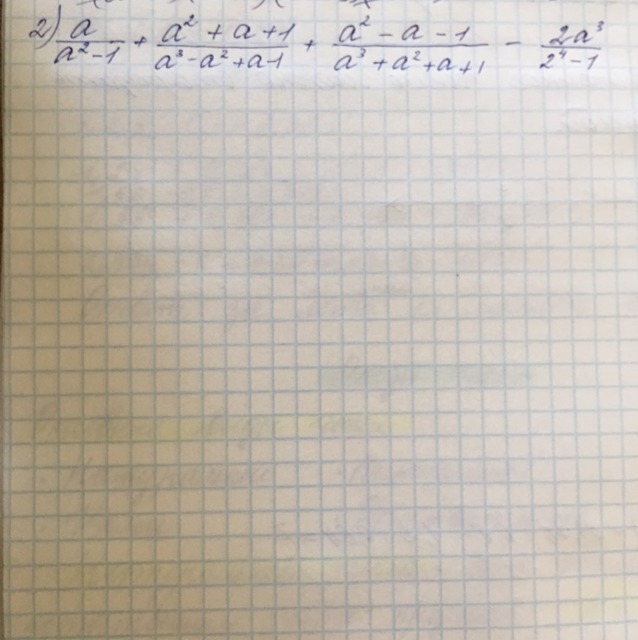 2) a/(a² - 1) + (a² + a + 1)/(a³ - a² + a - 1) + (a² - a - 1)/(a³ + a² + a + 1) - 2a³/(2⁴ - 1)